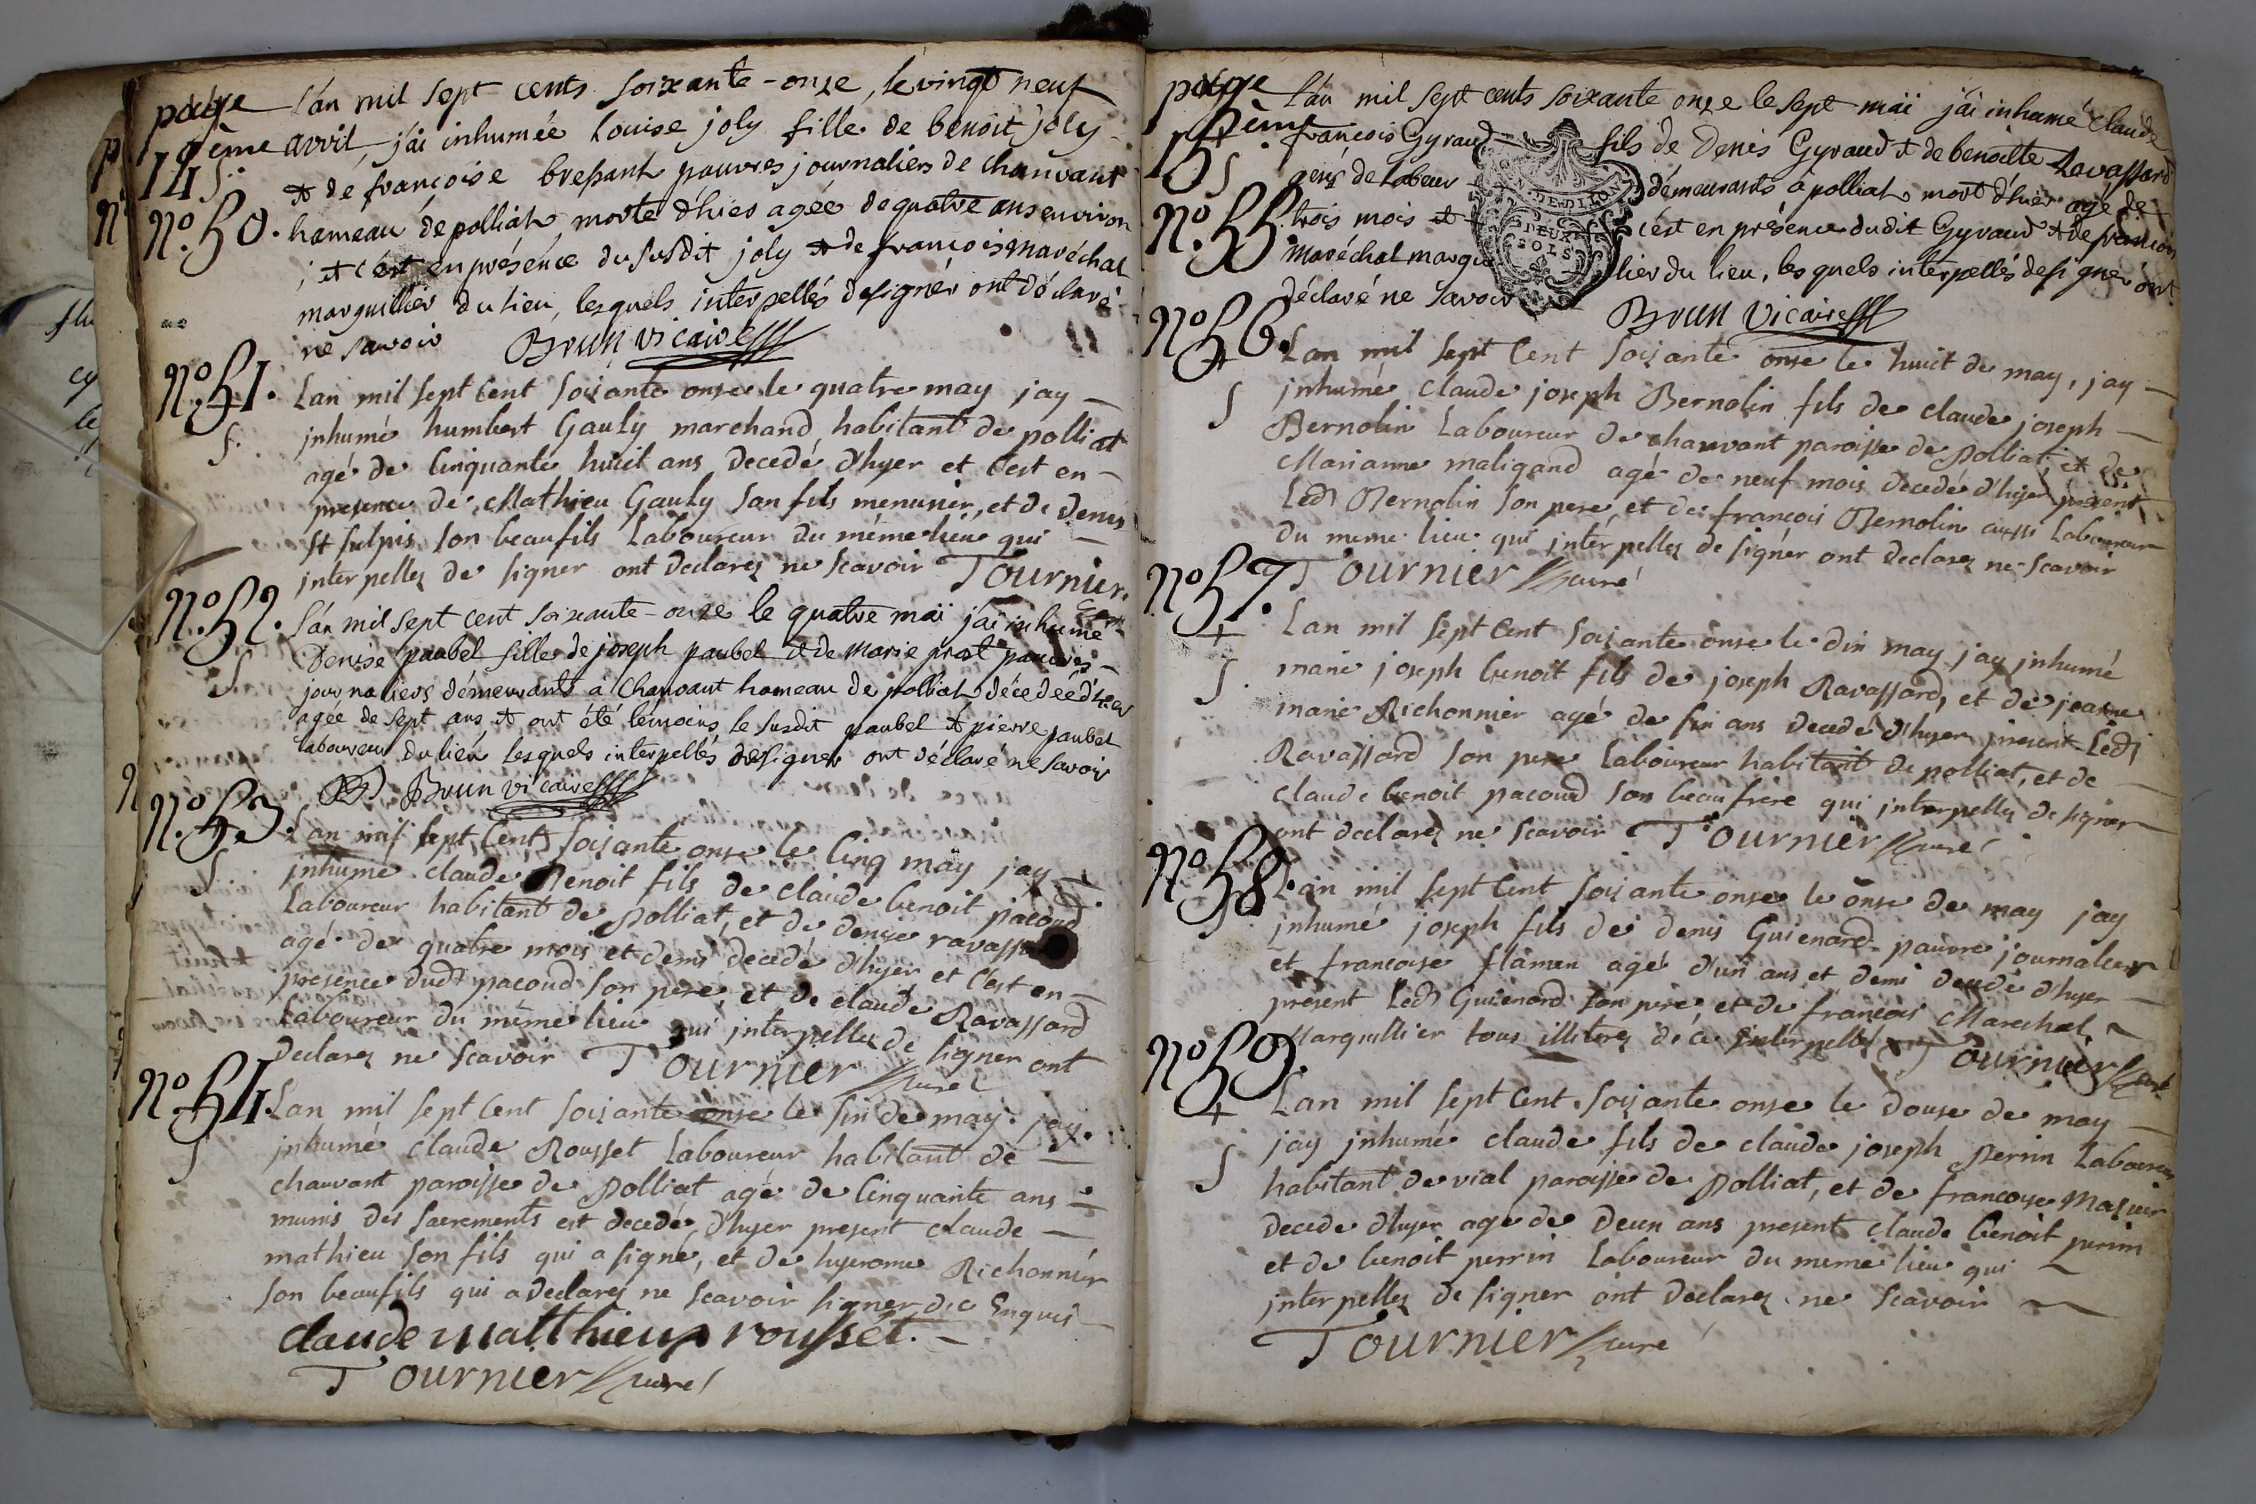 page
14ème
S.
L'an mil sept cents soixante-onze, le vingt neuf
avril, j'ai inhumée Louise joly fille de benoit joly
& de françoise bressant pauvres journaliers de chanvant
No. 50. hameau de polliat, morte d'hier agée de quatre ans environ
; & c'est en présence du susdit joly & de françois maréchal
marguillier du lieu, lesquels interpellés de signer ont déclaré
ne savoir Brun vicaire
No. 51. Lan mil sept cent soixante onze le quatre may jay
S. jnhumé humbert Gauly marchand habitant de polliat
agé de Cinquante huit ans decedé d'hyer et C'est en
presence de Mathieu Gauly son fils menunier, et de denis
st sulpis son beaufils Laboureur du même lieu qui
interpellez de signer ont declarez ne scavoir Tournier.
No. 52. L'an mil sept cent soixante-onze le quatre mai j'ai inhumé
Denise paubel fille de joseph paubel & de Marie prost pauvres
S journaliers démeurants à Chanvant hameau de polliat, décedée d'hier
agée de sept ans & ont été témoins le susdit paubel & pierre paubel
laboureur du lieu lesquels interpellés de signer ont déclaré ne savoir
Brun vicaire
No. 53. Lan mil sept Cent soixante onze le Cinq may jay
S jnhumé claude Benoit fils de claude benoit pacoud
Laboureur habitant de Polliat, et de denise ravassard
agé de quatre mois et demi decedé d'hyer et C'est en
presence dudt pacoud son pere, et de claude Ravassard
Laboureur du même lieu qui jnterpellez de signer ont
declarez ne scavoir Tournier curé
No. 54. Lan mil sept Cent soixante onze le six de may. jay
S jnhumé claude Rousset Laboureur habitant de
chanvant paroisse de Polliat agé de Cinquante ans
munis des sacrements est decedé d'hyer present claude
mathieu son fils qui a signé, et de hyerome Richonnier
son beaufils qui a declarez ne scavoir signer de ce Enquis
claude matthieu rousset.
Tournier curé
page
15ème
S
L'an mil sept cents soixante onze le sept mai j'ai inhumé Claude
françois Gyraud fils de Denis Gyraud & de benoitte Ravassard
gens de labeur démeurants à polliat, mort d'hier agé de
No. 55. trois mois & c'est en présence dudit Gyraud & de françois
Maréchal marguillier du lieu, lesquels interpellés de signer ont
déclaré ne savoir Brun vicaire
GEN. DE DIJON
DEUX
SOLS
No. 56. Lan mil sept Cent soixante onze le huit de may, jay
S jnhumé claude joseph Bernolin fils de claude joseph
Bernolin Laboureur de chanvant paroisse de Polliat, et de
Marianne maligand agé de neuf mois decedé d'hyer present
Ledt Bernolin son pere, et de françois Bernolin aussi Laboureur
du meme lieu qui jnterpellez de signer ont declarez ne scavoir
No. 57. Tournier curé
Lan mil sept Cent soixante onze le dix may jay jnhumé
S. marie joseph benoit fils de joseph Ravassard, et de jeanne
marie Richonnier agé de six ans decedé d'hyer present Ledt
Ravassard son pere Laboureur habitant de polliat, et de
claude benoit pacoud son beau frere qui jnterpellez de signer
ont declarez ne scavoir Tournier curé
No. 58. Lan mil sept Cent soixante onze le onze de may jay
S jnhumé joseph fils de denis Guienard pauvre journalier
et francoise flamen agé d'un ans et demi decedé d'hyer
present Ledt Guienard son pere, et de françois Marechal
Marguillier tous illiterez de ce jnterpellés Tournier curé
No. 59. Lan mil sept Cent soixante onze le douze de may
S jay jnhumé claude fils de claude joseph Perrin Laboureur
habitant de vial paroisse de Polliat, et de francoise Masuir
decede d'hyer age de deux ans present claude benoit perrin
et de benoit perrin Laboureur du meme lieu qui
jnterpellez de signer ont declarez ne scavoir
Tournier curé